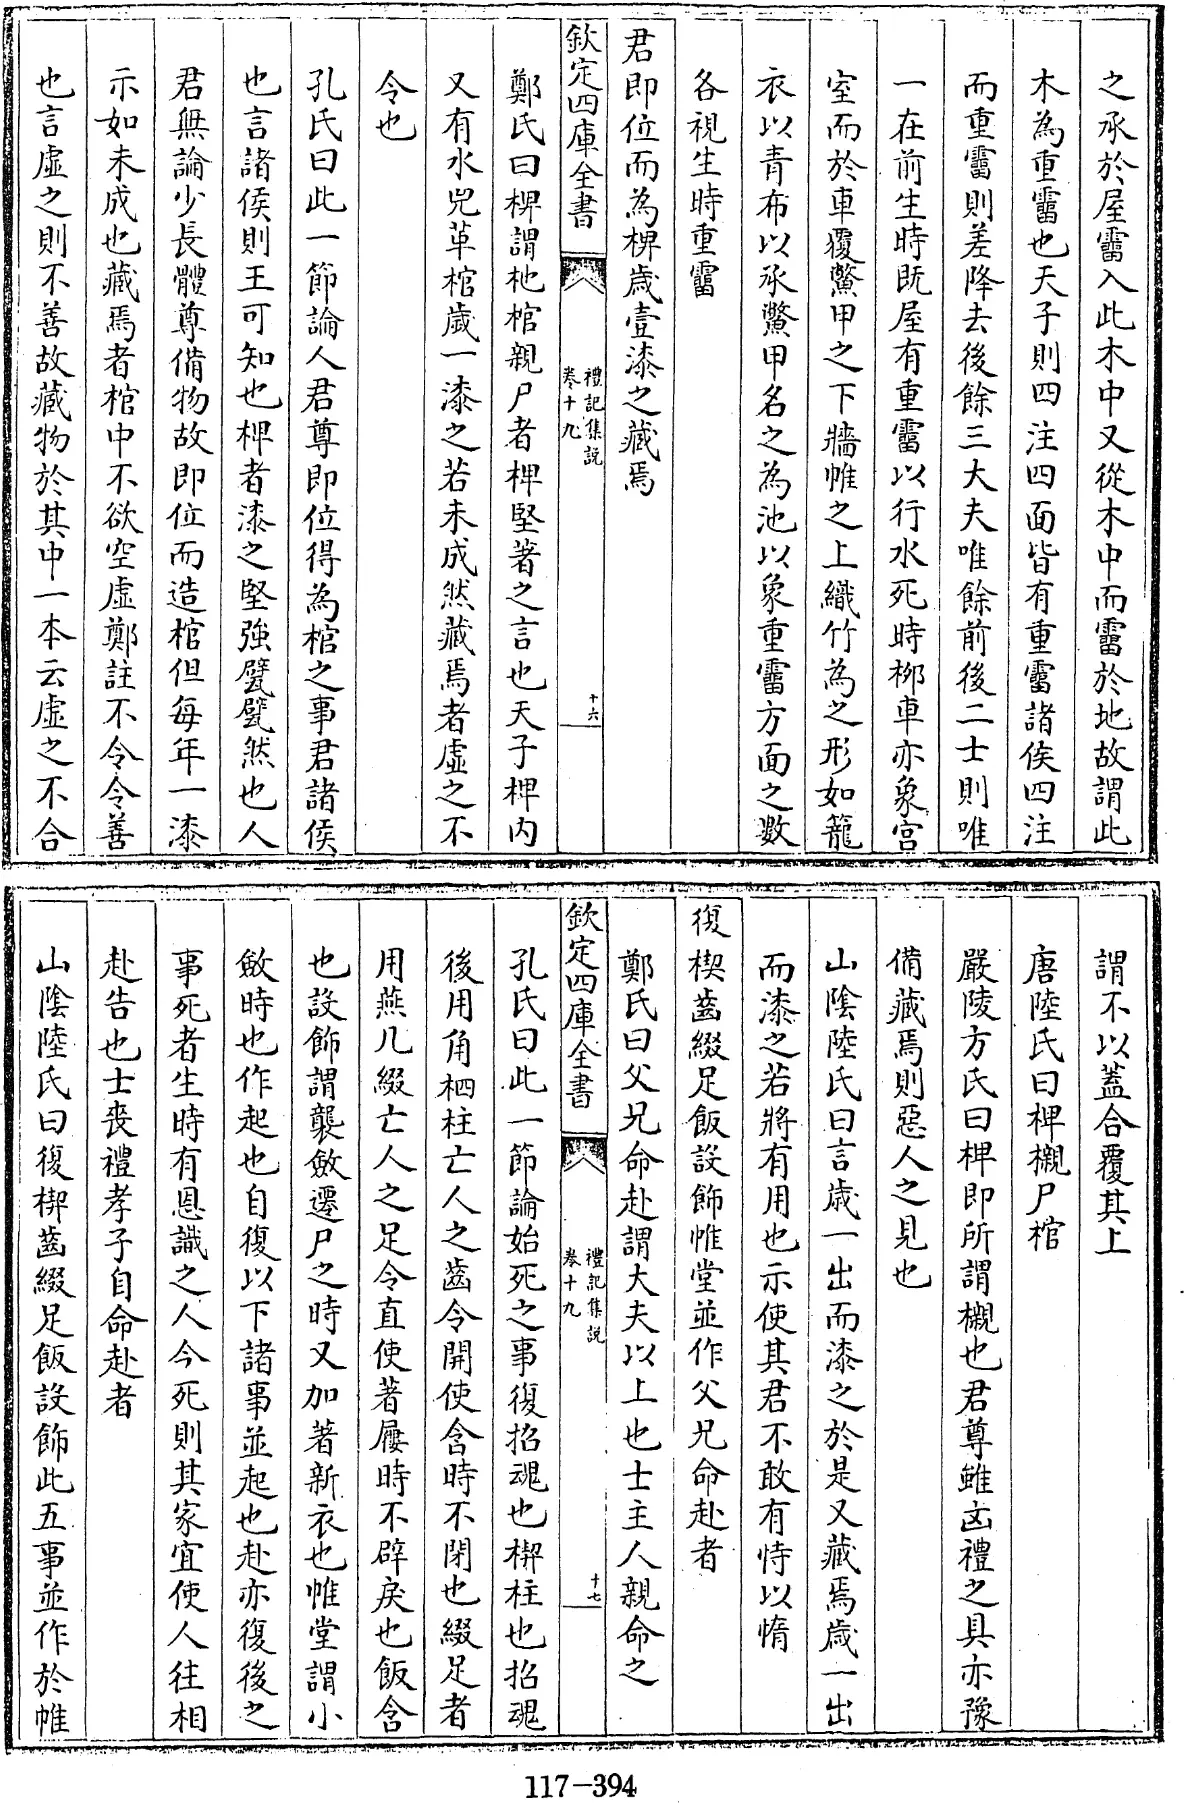 之承於屋霤入此木中又從木中而霤於地故謂此
木為重霤也天子則四注四面皆有重霤諸侯四注
而重霤則差降去後餘三大夫唯餘前後二士則唯
一在前生時既屋有重霤以行水死時柳車亦象宮
室而於車覆鼈甲之下牆帷之上織竹為之形如籠
衣以青布以承鼈甲名之為池以象重霤方面之數
各視生時重霤
君即位而為椑歲壹漆之藏焉
欽定四庫全書
禮記集說
卷十九
十六
鄭氏曰椑謂杝棺親尸者椑堅著之言也天子椑内
又有水兕革棺歲一漆之若未成然藏焉者虛之不
令也
孔氏曰此一節論人君尊即位得為棺之事君諸侯
也言諸侯則王可知也椑者漆之堅強甓甓然也人
君無論少長體尊備物故即位而造棺但每年一漆
示如未成也藏焉者棺中不欲空虛鄭註不令令善
也言虛之則不善故藏物於其中一本云虛之不合
謂不以蓋合覆其上
唐陸氏曰椑櫬尸棺
嚴陵方氏曰椑即所謂櫬也君尊雖凶禮之具亦豫
備藏焉則惡人之見也
山陰陸氏曰言歲一出而漆之於是又藏焉歲一出
而漆之若將有用也示使其君不敢有恃以惰
復楔齒綴足飯設飾帷堂並作父兄命赴者
鄭氏曰父兄命赴謂大夫以上也士主人親命之
欽定四庫全書
禮記集說
卷十九
十七
孔氏曰此一節論始死之事復招魂也楔柱也招魂
後用角柶柱亡人之齒令開使含時不閉也綴足者
用燕几綴亡人之足令直使著屨時不辟戾也飯含
也設飾謂襲斂遷尸之時又加著新衣也帷堂謂小
斂時也作起也自復以下諸事並起也赴亦復後之
事死者生時有恩識之人今死則其家宜使人往相
赴告也士喪禮孝子自命赴者
山陰陸氏曰復楔齒綴足飯設飾此五事並作於帷
117-394